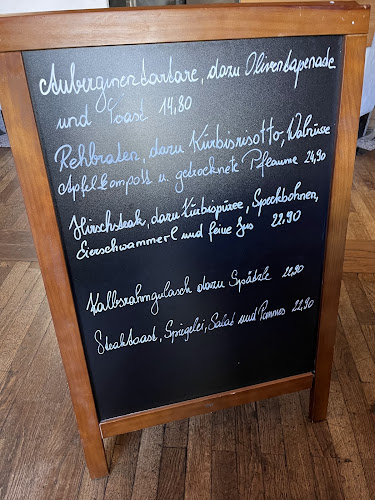 Auberginentartare, dazu Oliventapenade
und Toast 14,80
Rehbraten, dazu Kürbisrisotto, Walnüsse
Apfelkompott u. getrocknete Pflaume 24,90
Hirschsteak, dazu Kürbispüree, Speckbohnen,
Eierschwammerl und feine Jus 22.90
Kalbsrahmgulasch dazu Spätzle 22,90
Steaktoast, Spiegelei, Salat und Pommes 22,90